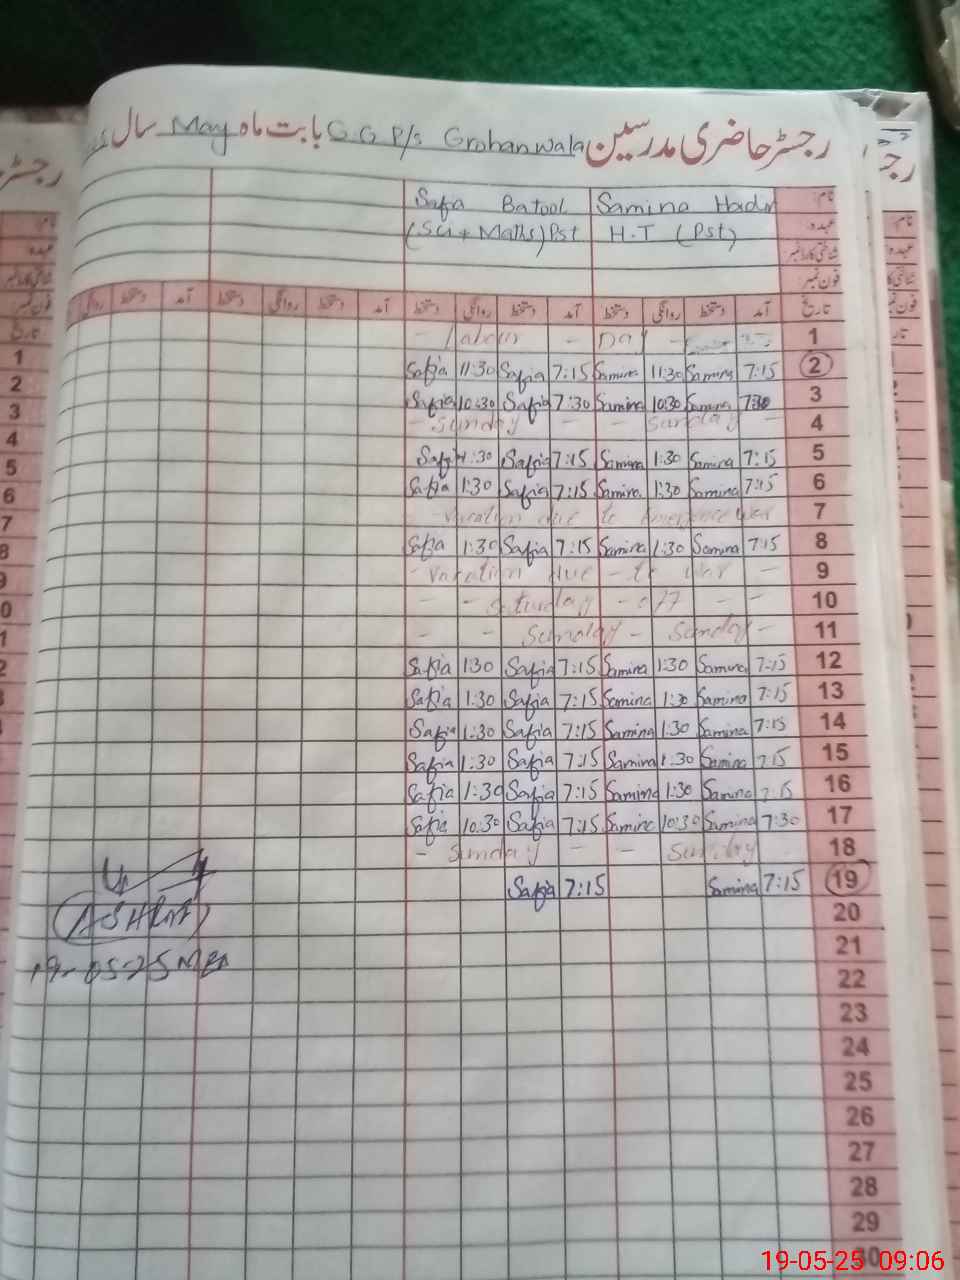 رجسٹر حاضری مدرسین G.G P/s Grohanwala بابت ماہ May سال
نام: Samina Hadr Safia Batool
عہدہ: H.T (Pst) (Sci + Maths) Pst
شناختی کارڈ نمبر:
فون نمبر:
تاریخ آمد دستخط روانگی دستخط آمد دستخط روانگی دستخط آمد دستخط روانگی دستخط آمد دستخط روانگی
1 - Labour - Day -
2 7:15 Samina 11:30 Samina 7:15 Safia 11:30 Safia
3 7:30 Samina 10:30 Samina 7:30 Safia 10:30 Safia
4 - Sunday - - Sunday -
5 7:15 Samina 1:30 Samina 7:15 Safia 1:30 Safia
6 7:15 Samina 1:30 Samina 7:15 Safia 1:30 Safia
7 - Vacation due to Emergence War
8 7:15 Samina 1:30 Samina 7:15 Safia 1:30 Safia
9 - Vacation due - to War -
10 - - Saturday - off - -
11 - - Sunday - Sunday -
12 7:15 Samina 1:30 Samina 7:15 Safia 1:30 Safia
13 7:15 Samina 1:30 Samina 7:15 Safia 1:30 Safia
14 7:15 Samina 1:30 Samina 7:15 Safia 1:30 Safia
15 7:15 Samina 1:30 Samina 7:15 Safia 1:30 Safia
16 7:15 Samina 1:30 Samina 7:15 Safia 1:30 Safia
17 7:30 Samina 10:30 Samina 7:15 Safia 10:30 Safia
18 - Sunday - - Sunday
19 7:15 Samina 7:15 Safia
20
21
22
23
24
25
26
27
28
29
30
ASHRAF
19-05-25
19-05-25 09:06